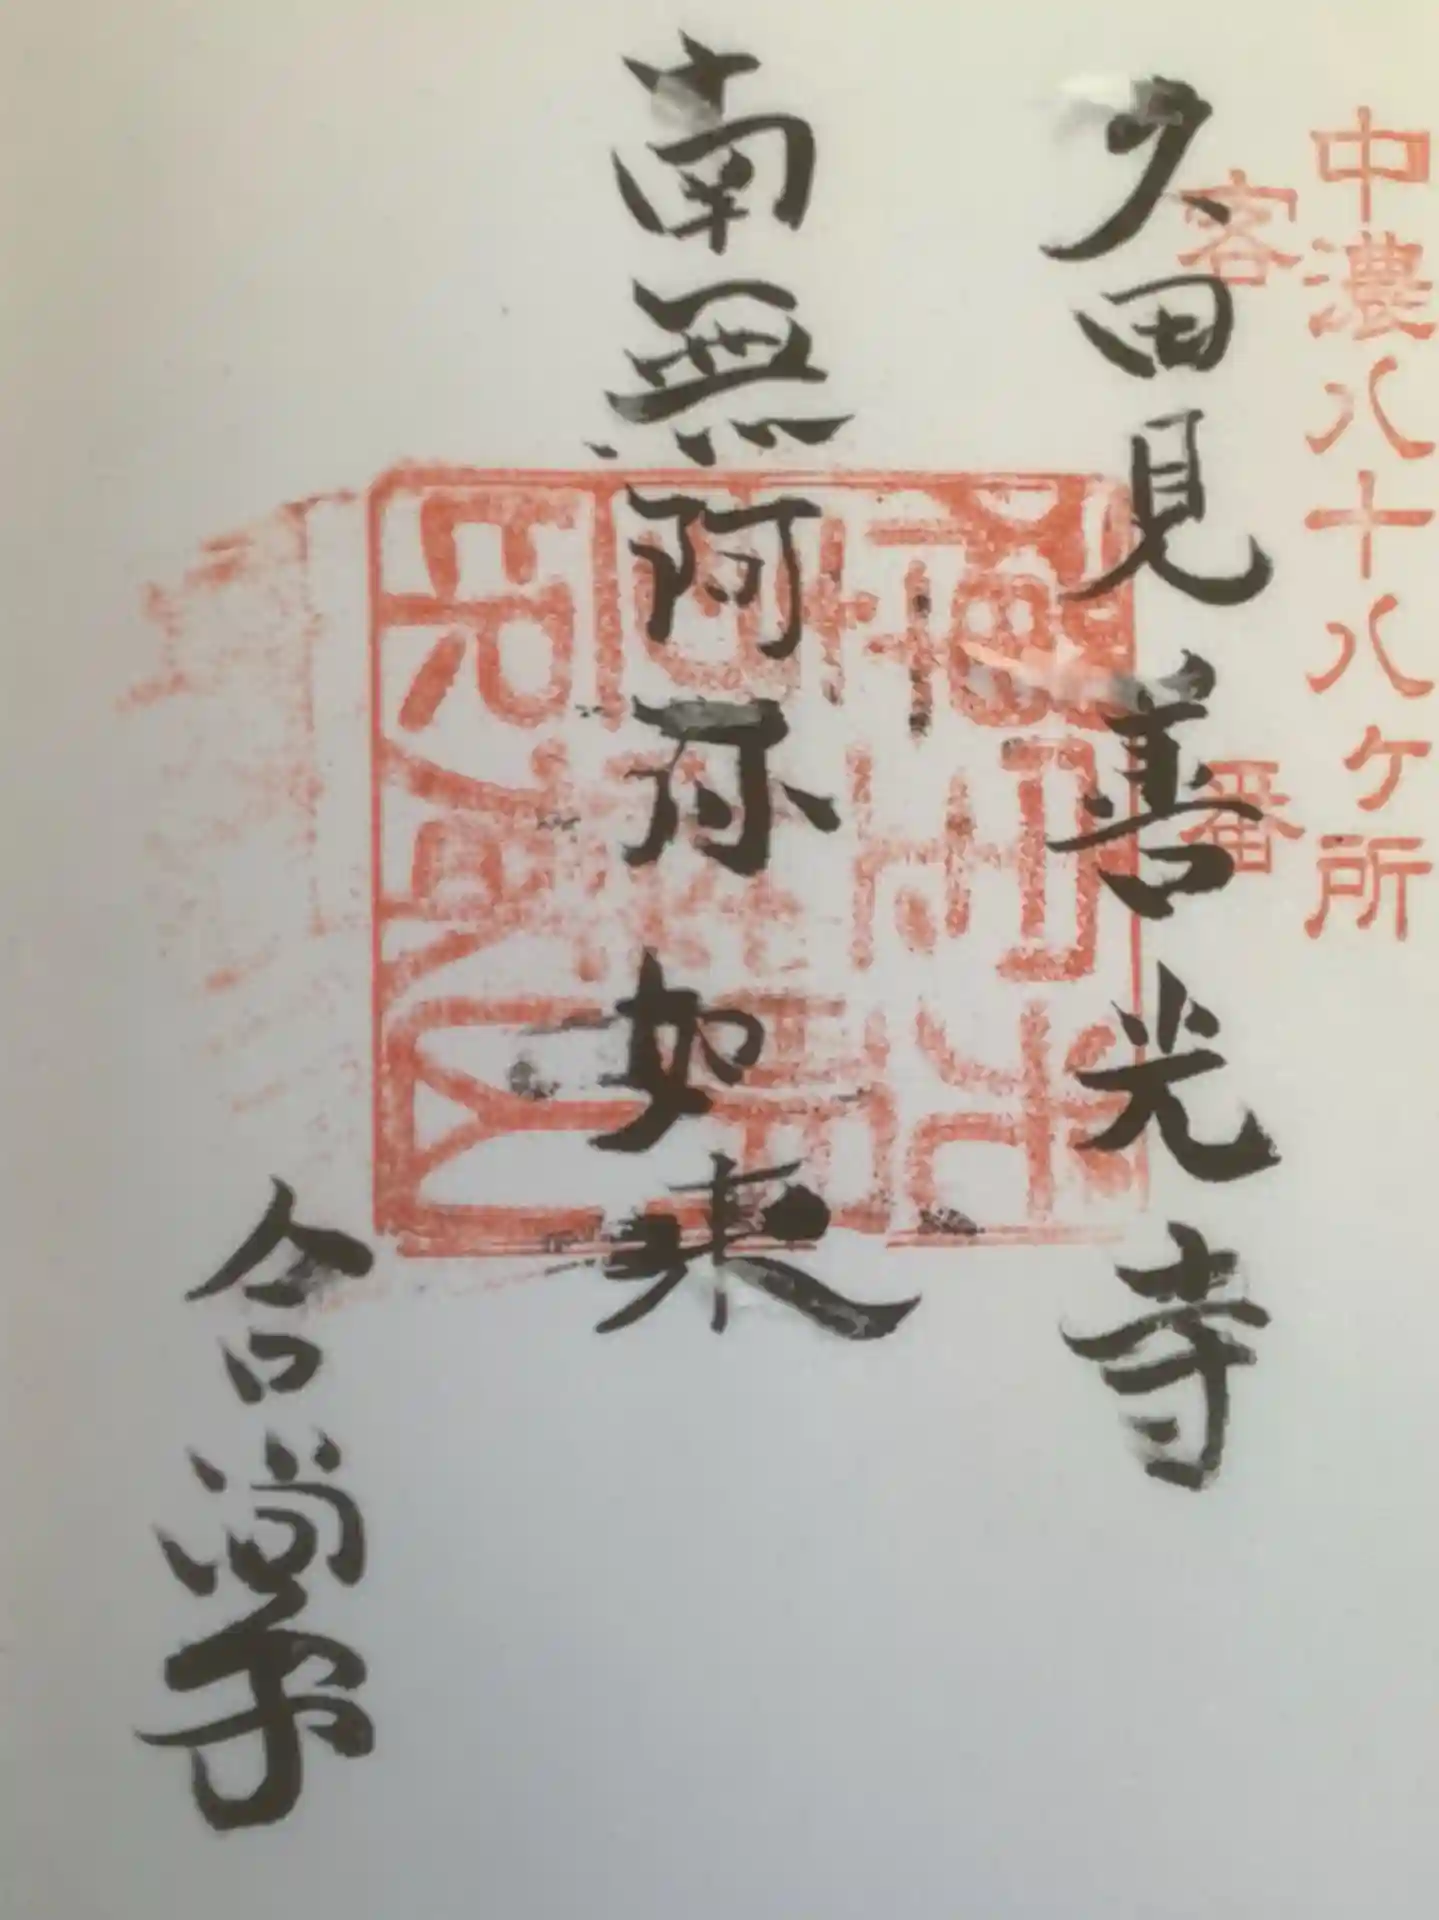 中濃八十八ヶ所
客 番
久田見善光寺
南無阿弥如来
合掌